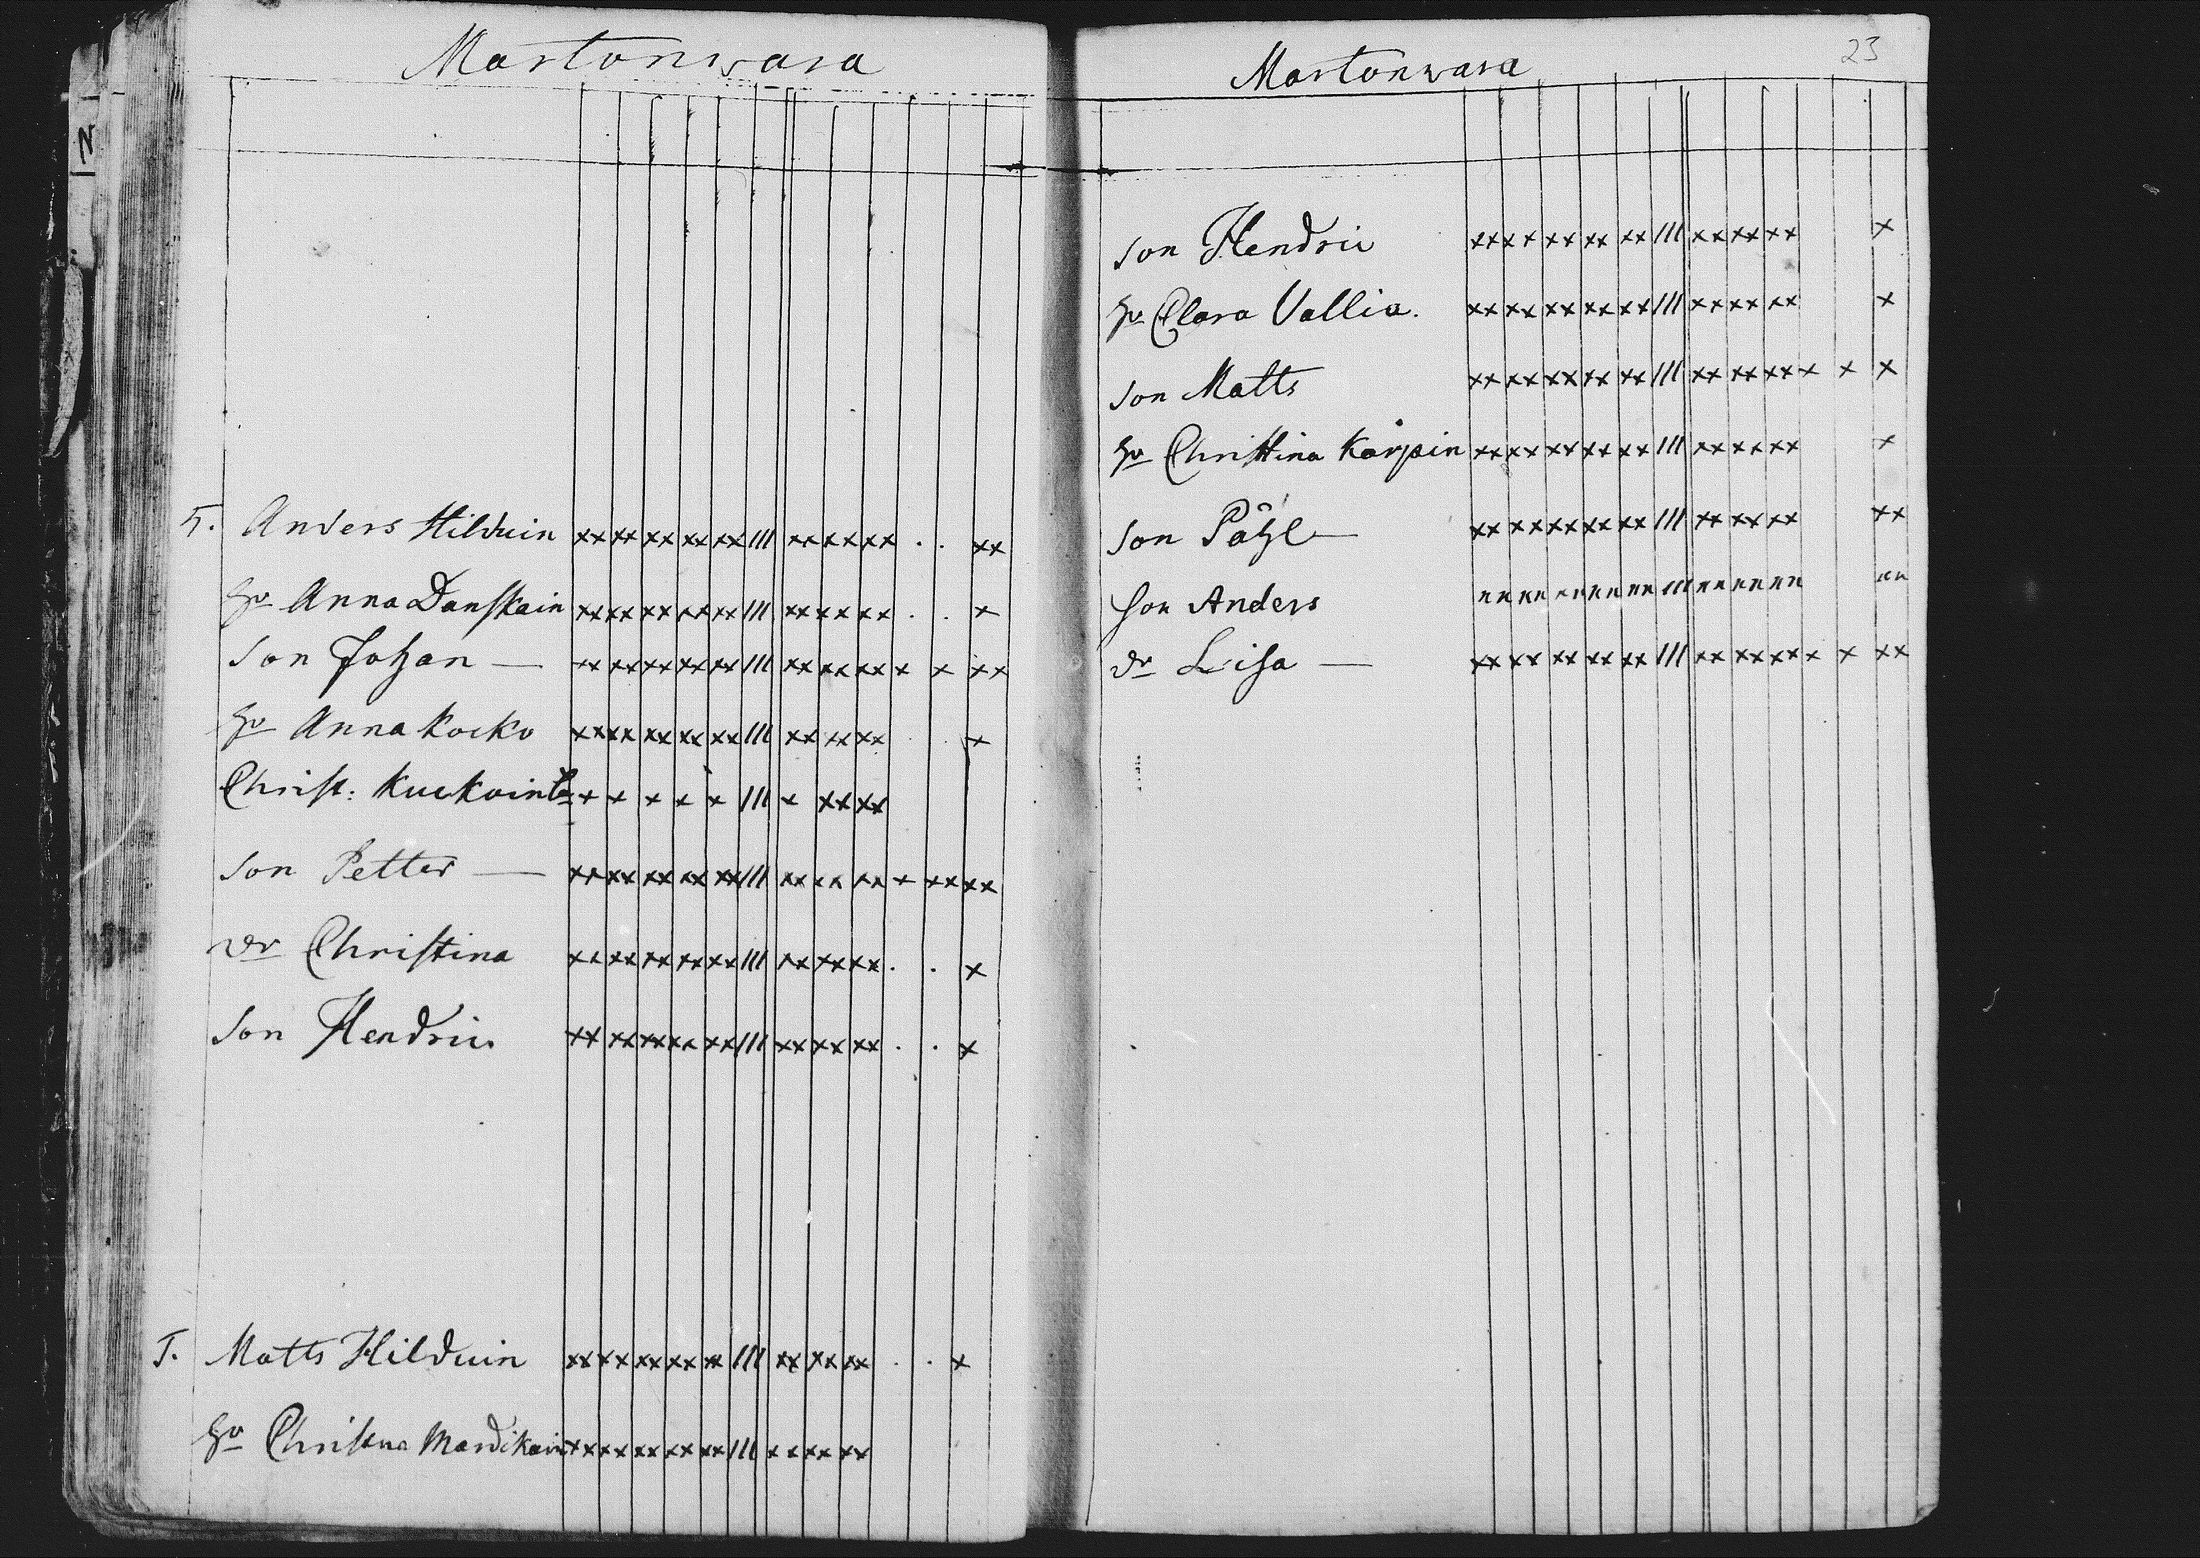 Martonwara
5. Anders Hilduin xx xx xx xx xx /// xx xx xx . . xx
hu Anna Danskain xx xx xx xx xx /// xx xx xx . . x
Son Johan — xx xx xx xx xx /// xx xx xx x x xx
hu Anna Kocko xx xx xx xx xx /// xx xx xx . . x
Christ: x x x x x /// x xx xx
Son Petter — xx xx xx xx xx /// xx xx xx x xx xx
dr Christina xx xx xx xx xx /// xx xx xx . . x
Son Hendric xx xx xx xx xx /// xx xx xx . . x
Matts Hilduin xx xx xx xx xx /// xx xx xx . . x
hu Christina Mardikain xx xx xx xx xx /// xx xx xx
23
Martonwara
Son Hendric xx xx xx xx xx /// xx xx xx x
hu Clara Vallia. xx xx xx xx xx /// xx xx xx x
Son Matts xx xx xx xx xx /// xx xx xx x x x
hu Christina Kårpin xx xx xx xx xx /// xx xx xx x
Son Påhl — xx xx xx xx xx /// xx xx xx xx
Son Anders
dr Lisa — xx xx xx xx xx /// xx xx xx x x xx